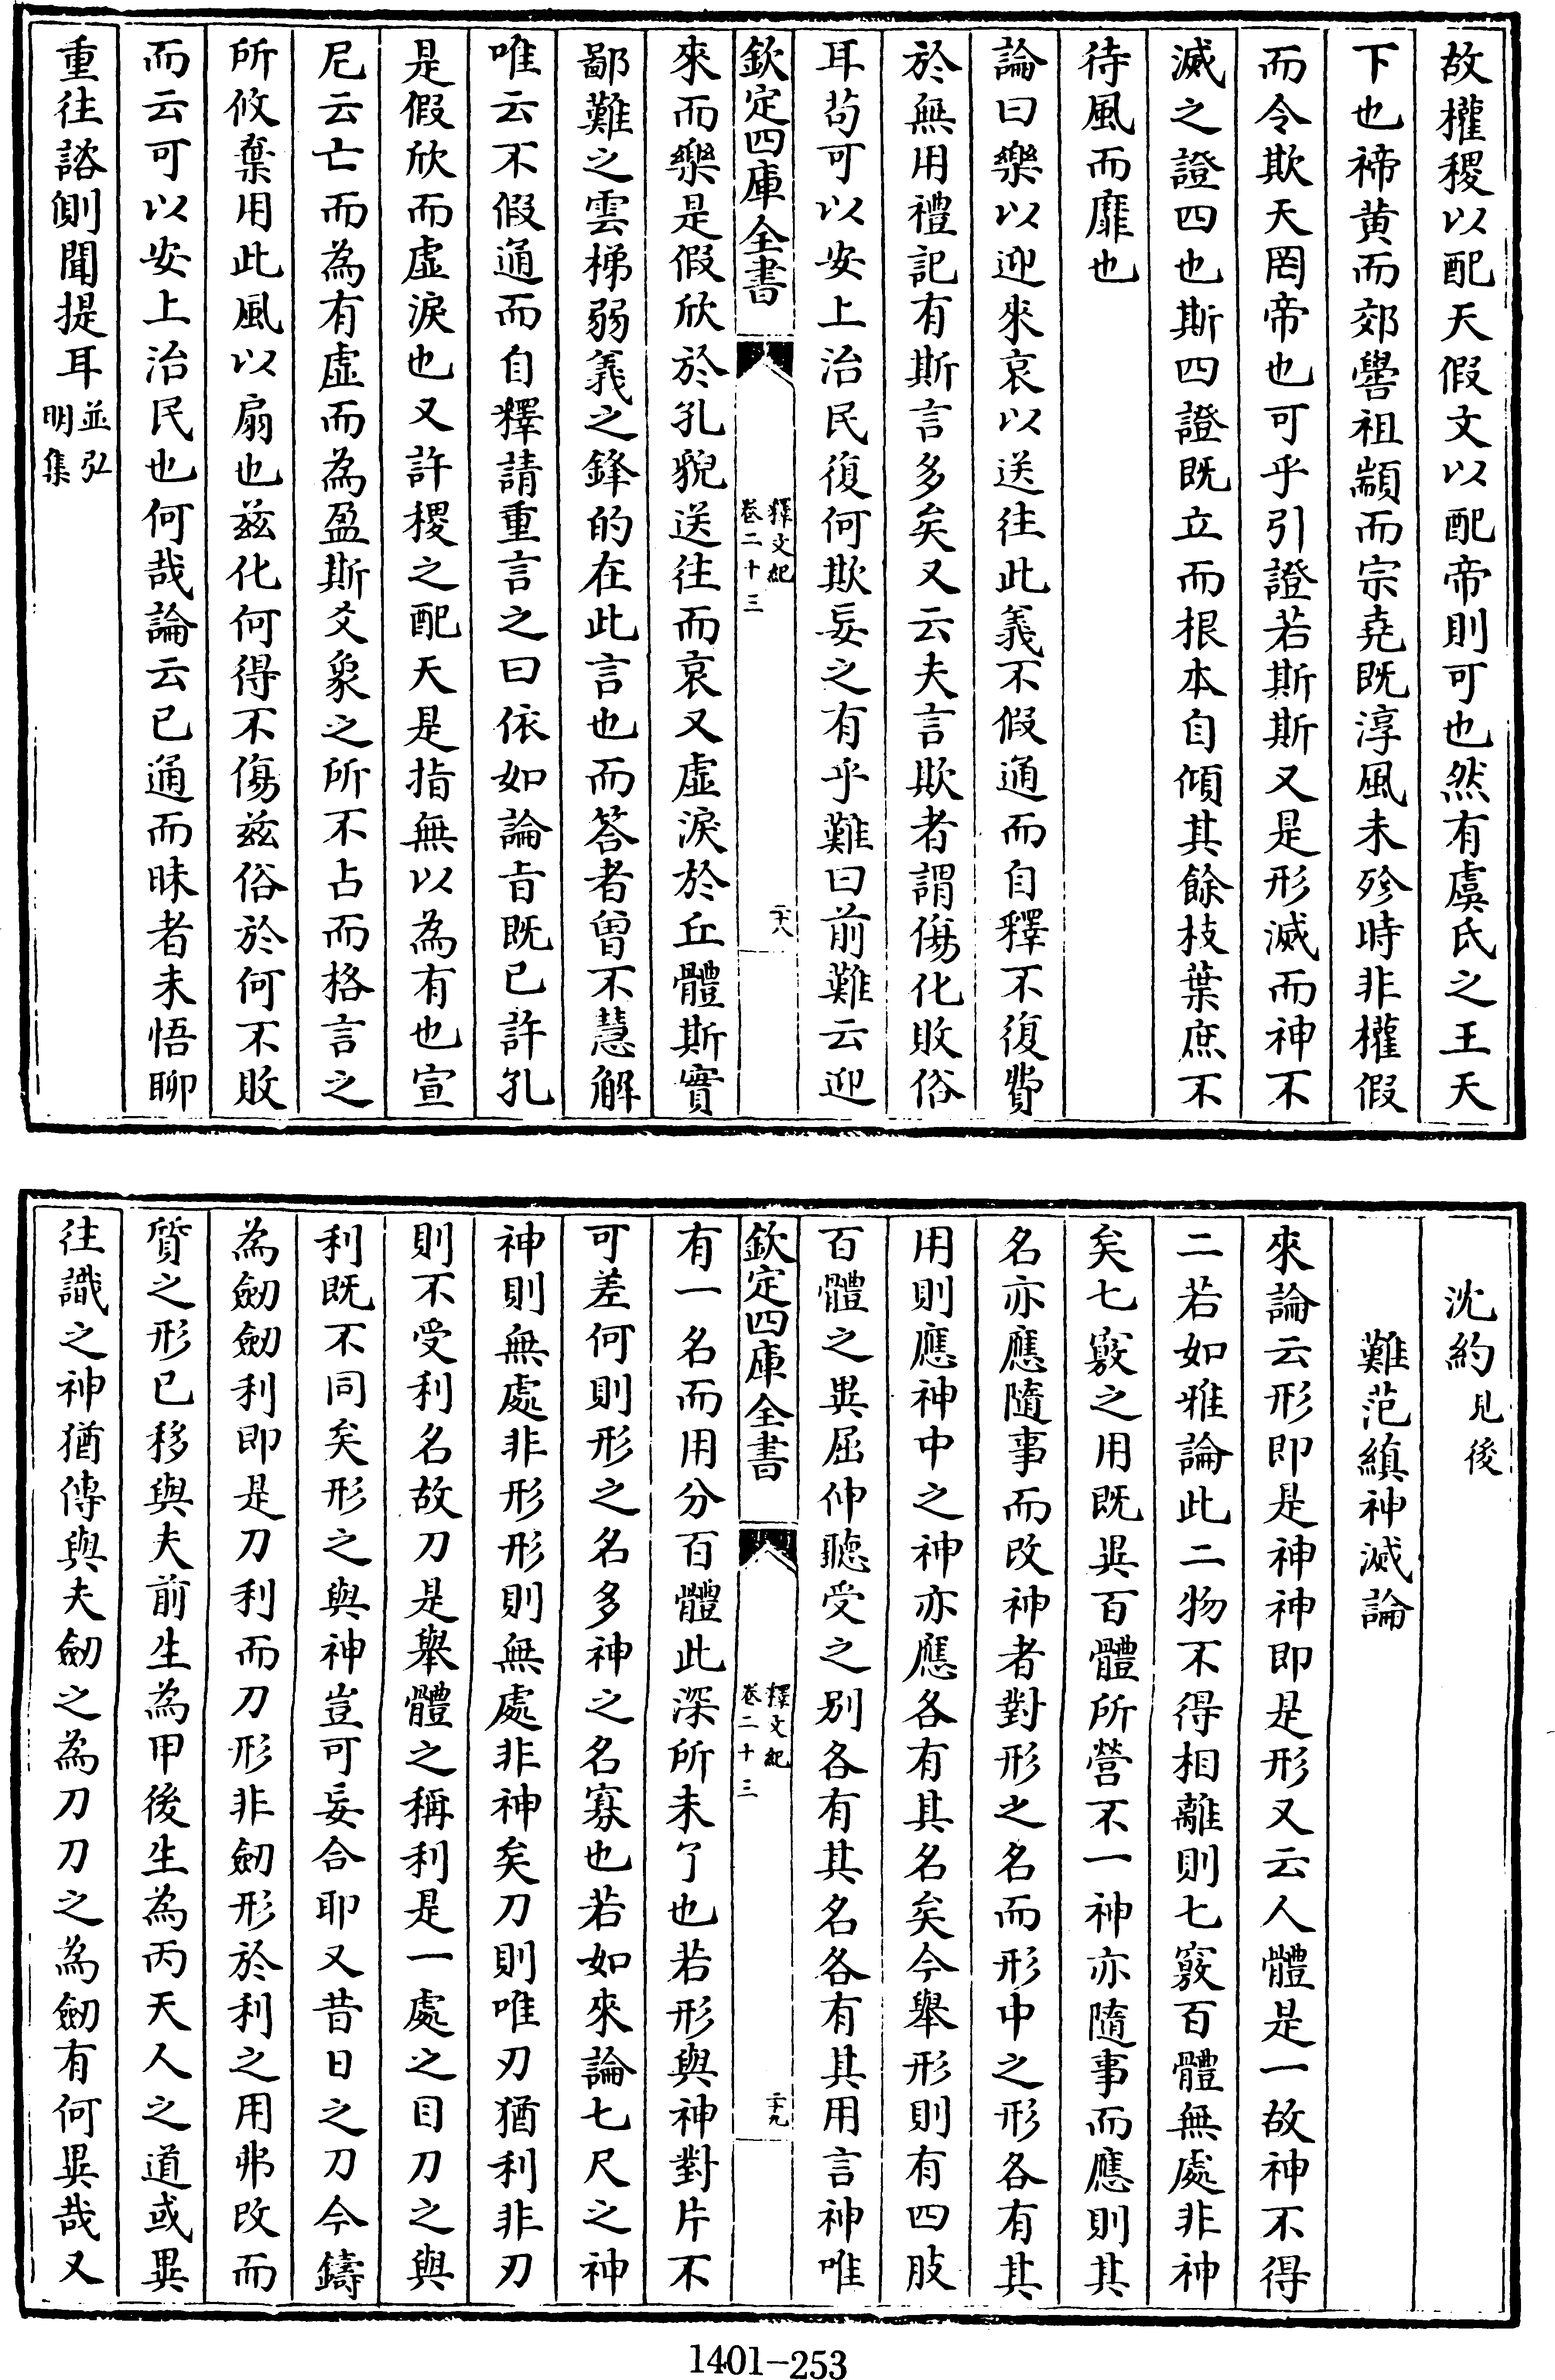 故權稷以配天假文以配帝則可也然有虞氏之王天
下也禘黄而郊嚳祖顓而宗堯既淳風未殄時非權假
而令欺天罔帝也可乎引證若斯斯又是形滅而神不
滅之證四也斯四證既立而根本自傾其餘枝葉庶不
待風而靡也
論曰樂以迎來哀以送往此義不假通而自釋不復費
於無用禮記有斯言多矣又云夫言欺者謂傷化敗俗
耳苟可以安上治民復何欺妄之有乎難曰前難云迎
欽定四庫全書
釋文紀
卷二十三
二十八
來而樂是假欣於孔貌送往而哀又虛淚於丘體斯實
鄙難之雲梯弱義之鋒的在此言也而答者曾不慧解
唯云不假通而自釋請重言之曰依如論旨既已許孔
是假欣而虛淚也又許稷之配天是指無以為有也宣
尼云亡而為有虛而為盈斯爻象之所不占而格言之
所攸棄用此風以扇也兹化何得不傷兹俗於何不敗
而云可以安上治民也何哉論云已通而昧者未悟聊
重往諮側聞提耳並弘
明集
沈約見後
難范縝神滅論
來論云形即是神神即是形又云人體是一故神不得
二若如雅論此二物不得相離則七竅百體無處非神
矣七竅之用既異百體所營不一神亦隨事而應則其
名亦應隨事而改神者對形之名而形中之形各有其
用則應神中之神亦應各有其名矣今舉形則有四肢
百體之異屈伸聽受之别各有其名各有其用言神唯
欽定四庫全書
釋文紀
卷二十三
二十九
有一名而用分百體此深所未了也若形與神對片不
可差何則形之名多神之名寡也若如來論七尺之神
神則無處非形形則無處非神矣刀則唯刃猶利非刃
則不受利名故刀是舉體之稱利是一處之目刀之與
利既不同矣形之與神豈可妄合耶又昔日之刀今鑄
為劒劒利即是刀利而刀形非劒形於利之用弗改而
質之形已移與夫前生為甲後生為丙天人之道或異
往識之神猶傳與夫劒之為刀刀之為劒有何異哉又
1401-253